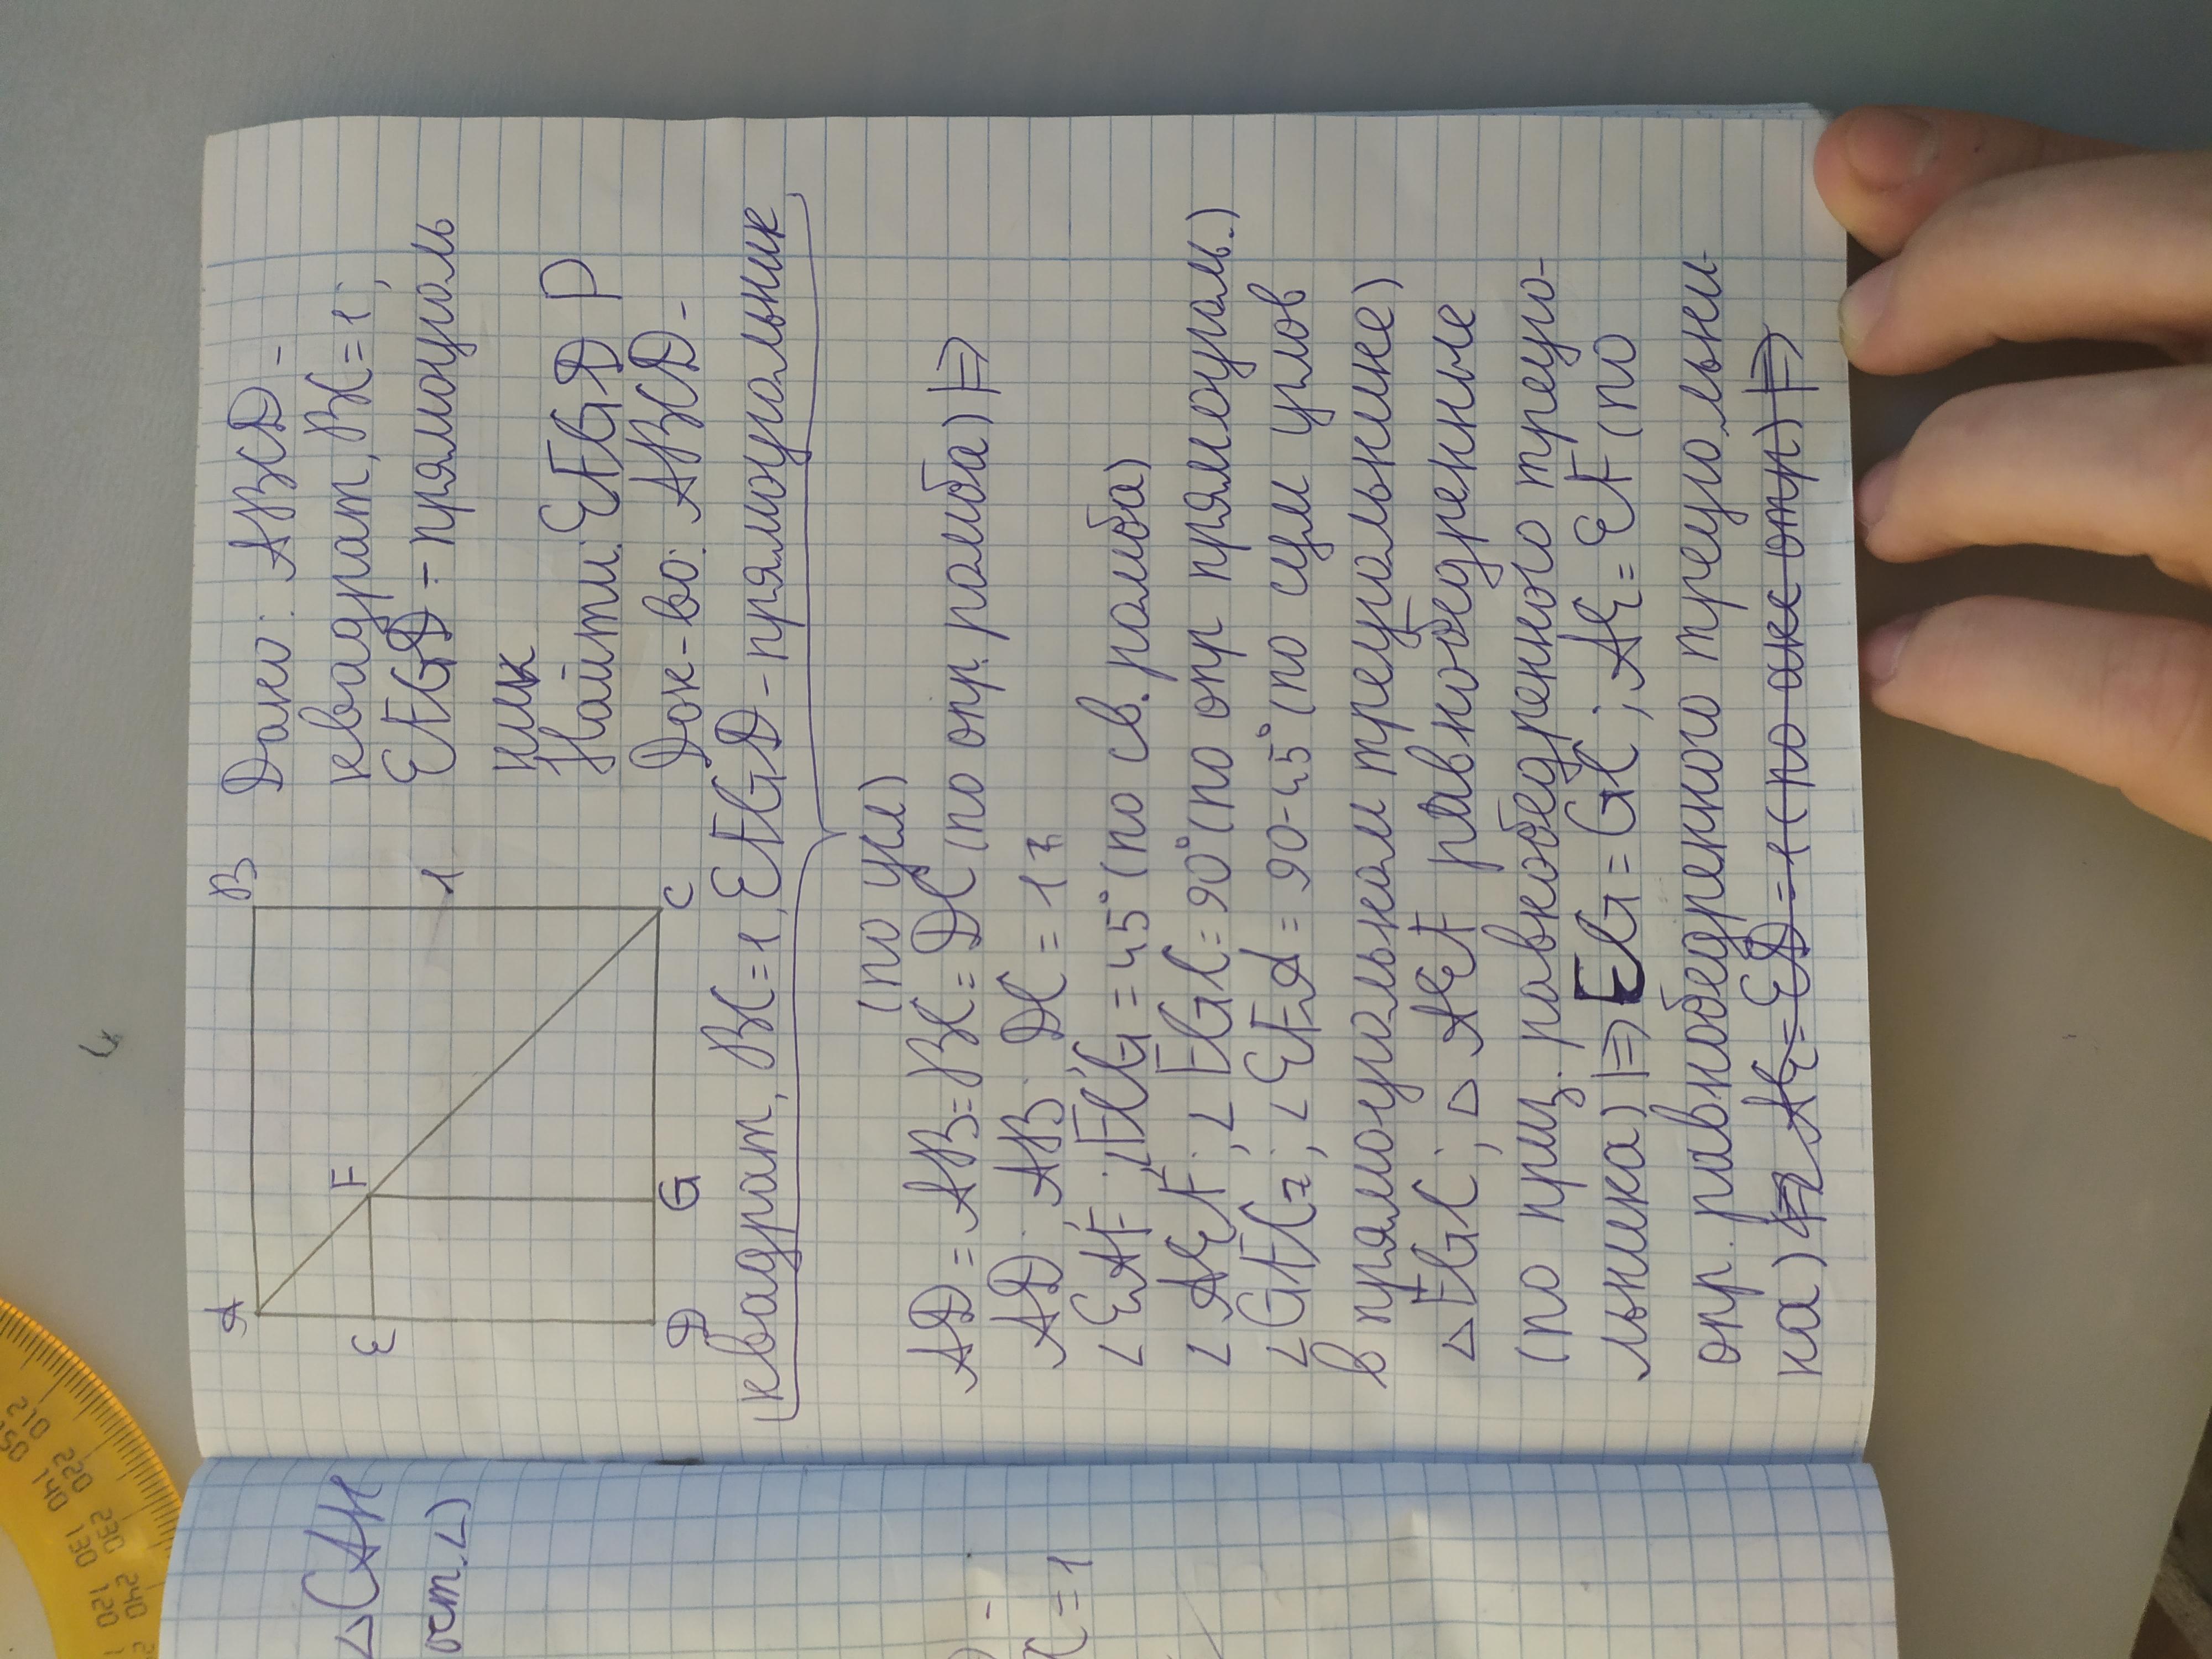 A
B
E
F
D
G
C
1
Дано: ABCD -
квадрат, BC = 1;
EFGD - прямоуголь
ник
Найти: EFGD P
Док-во: ABCD-
квадрат, BC = 1, EFGD - прямоугольник
(по усл)
AD = AB = BC = DC (по опр. ромба) |⇒
AD; AB; DC = 1
∠EAF; ∠FCG = 45° (по св. ромба)
∠AEF; ∠FGC = 90° (по опр прямоуголь.)
∠GFC =; ∠EFA = 90-45° (по сум углов
в прямоугольном треугольнике)
△FGC; △AEF равнобедренные
(по приз. равнобедренного треуго-
льника) |⇒ FG = GC; AE = EF (по
опр. равнобедренного треугольни-
ка) |⇒ AE = ED = 1 (по акс отр) |⇒
△CAH
ост. ∠)
C = 1